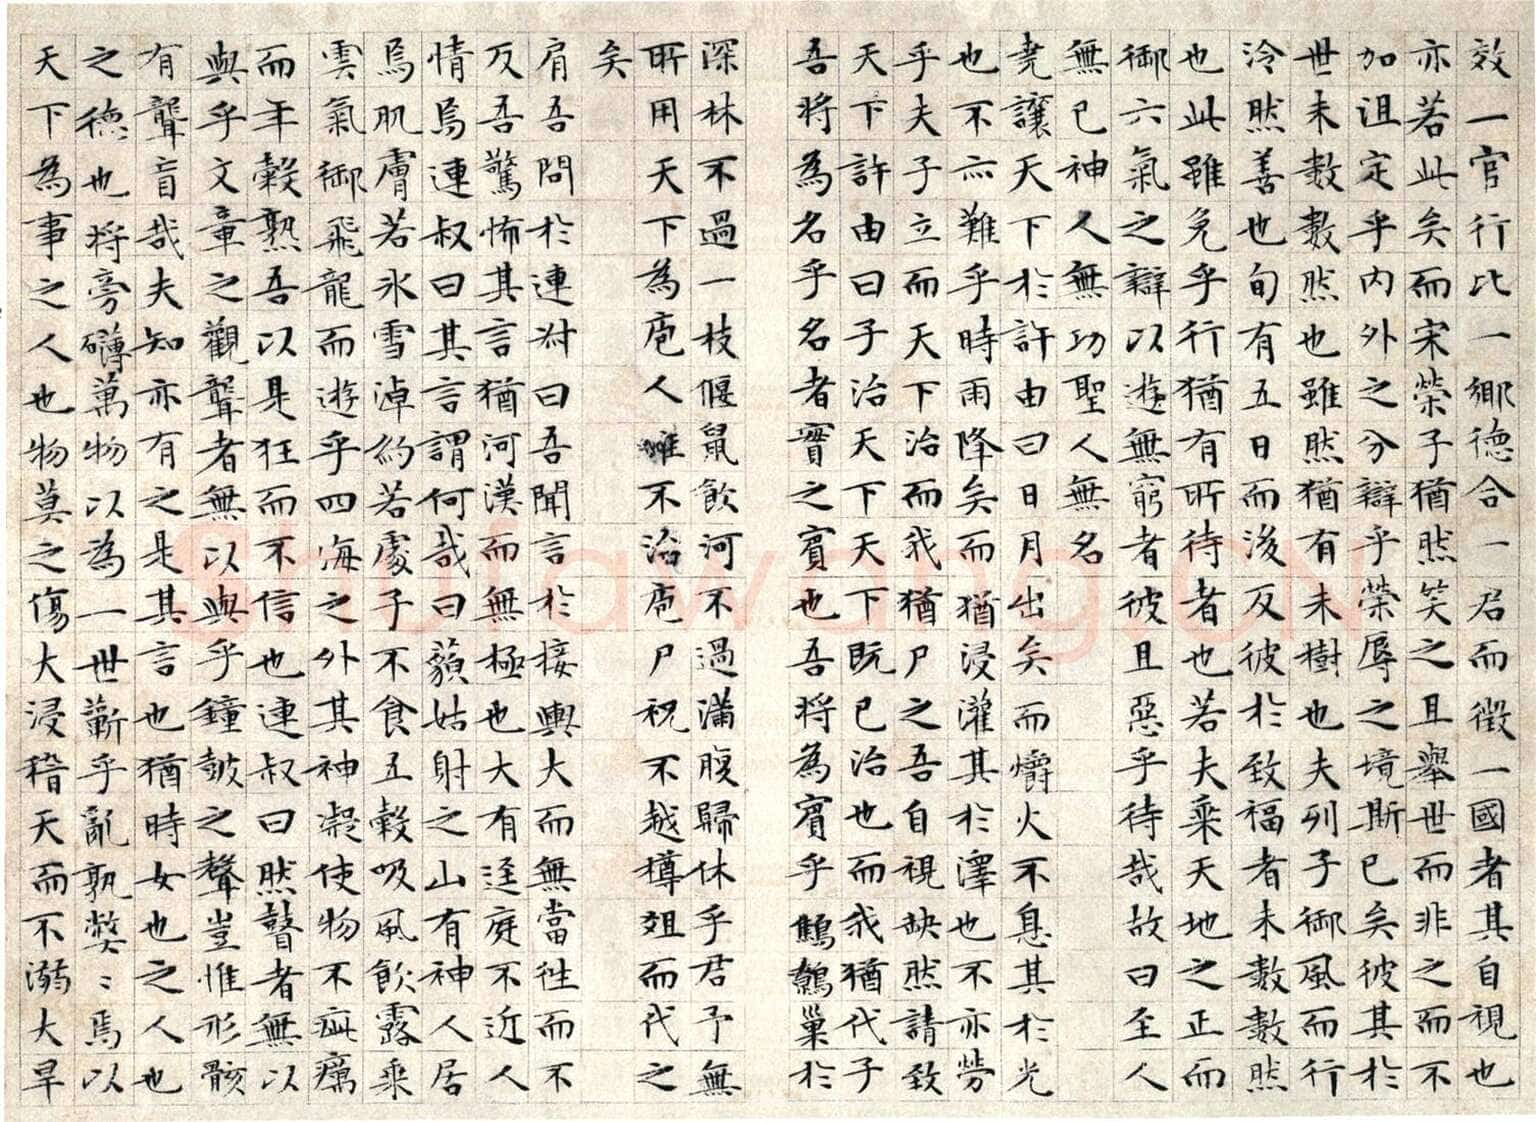 效一官行比一鄉德合一君而徵一國者其自視也
亦若此矣而宋榮子猶然笑之且舉世而非之而不
加沮定乎內外之分辯乎榮辱之境斯已矣彼其於
世未數數然也雖然猶有未樹也夫列子御風而行
泠然善也旬有五日而後反彼於致福者未數數然
也此雖免乎行猶有所待者也若夫乘天地之正而
御六氣之辯以遊無窮者彼且惡乎待哉故曰至人
無已神人無功聖人無名
堯讓天下於許由曰日月出矣而爝火不息其於光
也不亦難乎時雨降矣而猶浸灌其於澤也不亦勞
乎夫子立而天下治而我猶尸之吾自視缺然請致
天下許由曰子治天下天下既已治也而我猶代子
吾將為名乎名者實之賓也吾將為賓乎鷦鷯巢於
深林不過一枝偃鼠飲河不過滿腹歸休乎君予無
所用天下為庖人雖不治庖尸祝不越樽俎而代之
矣
肩吾問於連叔曰吾聞言於接輿大而無當往而不
反吾驚怖其言猶河漢而無極也大有逕庭不近人
情焉連叔曰其言謂何哉曰藐姑射之山有神人居
焉肌膚若冰雪淖約若處子不食五穀吸風飲露乘
雲氣御飛龍而遊乎四海之外其神凝使物不疵癘
而年穀熟吾以是狂而不信也連叔曰然瞽者無以
與乎文章之觀聾者無以與乎鐘鼓之聲豈惟形骸
有聾盲哉夫知亦有之是其言也猶時女也之人也
之德也將旁礴萬物以為一世蘄乎亂孰弊〻焉以
天下為事之人也物莫之傷大浸稽天而不溺大旱
Shufawang.CN